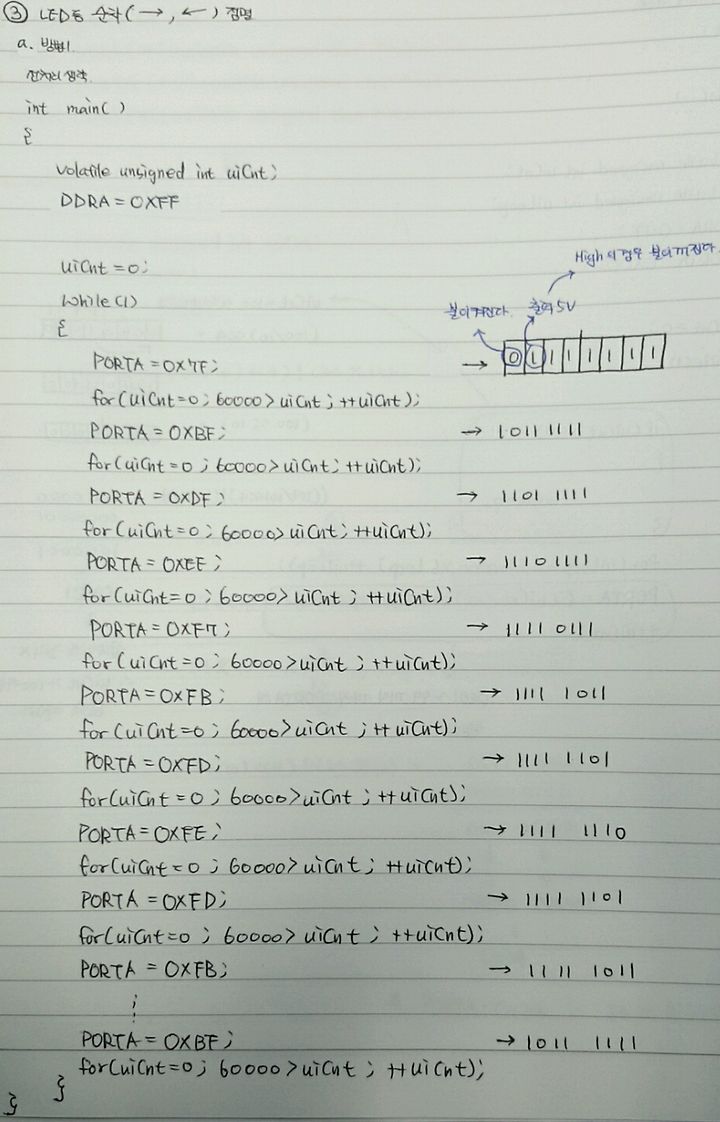 ③ LED를 순차(→, ←) 점멸
a. 방법1
int main( )
{
volatile unsigned int uiCnt;
DDRA = 0XFF
uiCnt = 0;
while(1)
{
High의 경우 불이 꺼진다.
불이켜진다. 출력 5V
PORTA = 0X7F; → 0 1 1 1 1 1 1 1
for(uiCnt=0; 60000>uiCnt; ++uiCnt);
PORTA = 0XBF; → 1011 1111
for(uiCnt=0; 60000>uiCnt; ++uiCnt);
PORTA = 0XDF; → 1101 1111
for(uiCnt=0; 60000>uiCnt; ++uiCnt);
PORTA = 0XEF; → 1110 1111
for(uiCnt=0; 60000>uiCnt; ++uiCnt);
PORTA = 0XF7; → 1111 0111
for(uiCnt=0; 60000>uiCnt; ++uiCnt);
PORTA = 0XFB; → 1111 1011
for(uiCnt=0; 60000>uiCnt; ++uiCnt);
PORTA = 0XFD; → 1111 1101
for(uiCnt=0; 60000>uiCnt; ++uiCnt);
PORTA = 0XFE; → 1111 1110
for(uiCnt=0; 60000>uiCnt; ++uiCnt);
PORTA = 0XFD; → 1111 1101
for(uiCnt=0; 60000>uiCnt; ++uiCnt);
PORTA = 0XFB; → 1111 1011
⋮
PORTA = 0XBF; → 1011 1111
for(uiCnt=0; 60000>uiCnt; ++uiCnt);
}
}